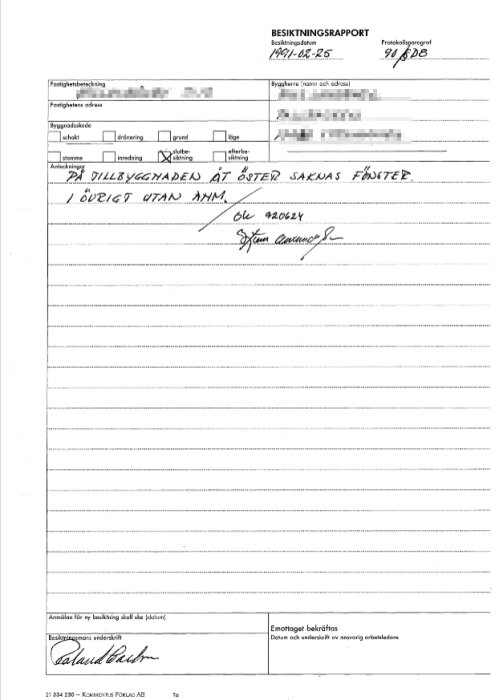 BESIKTNINGSRAPPORT
Besiktningsdatum
Protokollsparagraf
1991-02-25
90 § DB
Fastighetsbeteckning
Byggherre (namn och adress)
Fastighetens adress
Byggnadsskede
schakt
dränering
grund
läge
stomme
inredning
slutbe-
siktning
efterbe-
siktning
Anteckningar
PÅ TILLBYGGNADEN ÅT ÖSTER SAKNAS FÖNSTER.
I ÖVRIGT UTAN ANM.
Ok 920624
Anmälan för ny besiktning skall ske (datum)
Emottaget bekräftas
Besiktningsmans underskrift
Datum och underskrift av ansvarig arbetsledare
21 334 230 – KOMMENTUS FÖRLAG AB